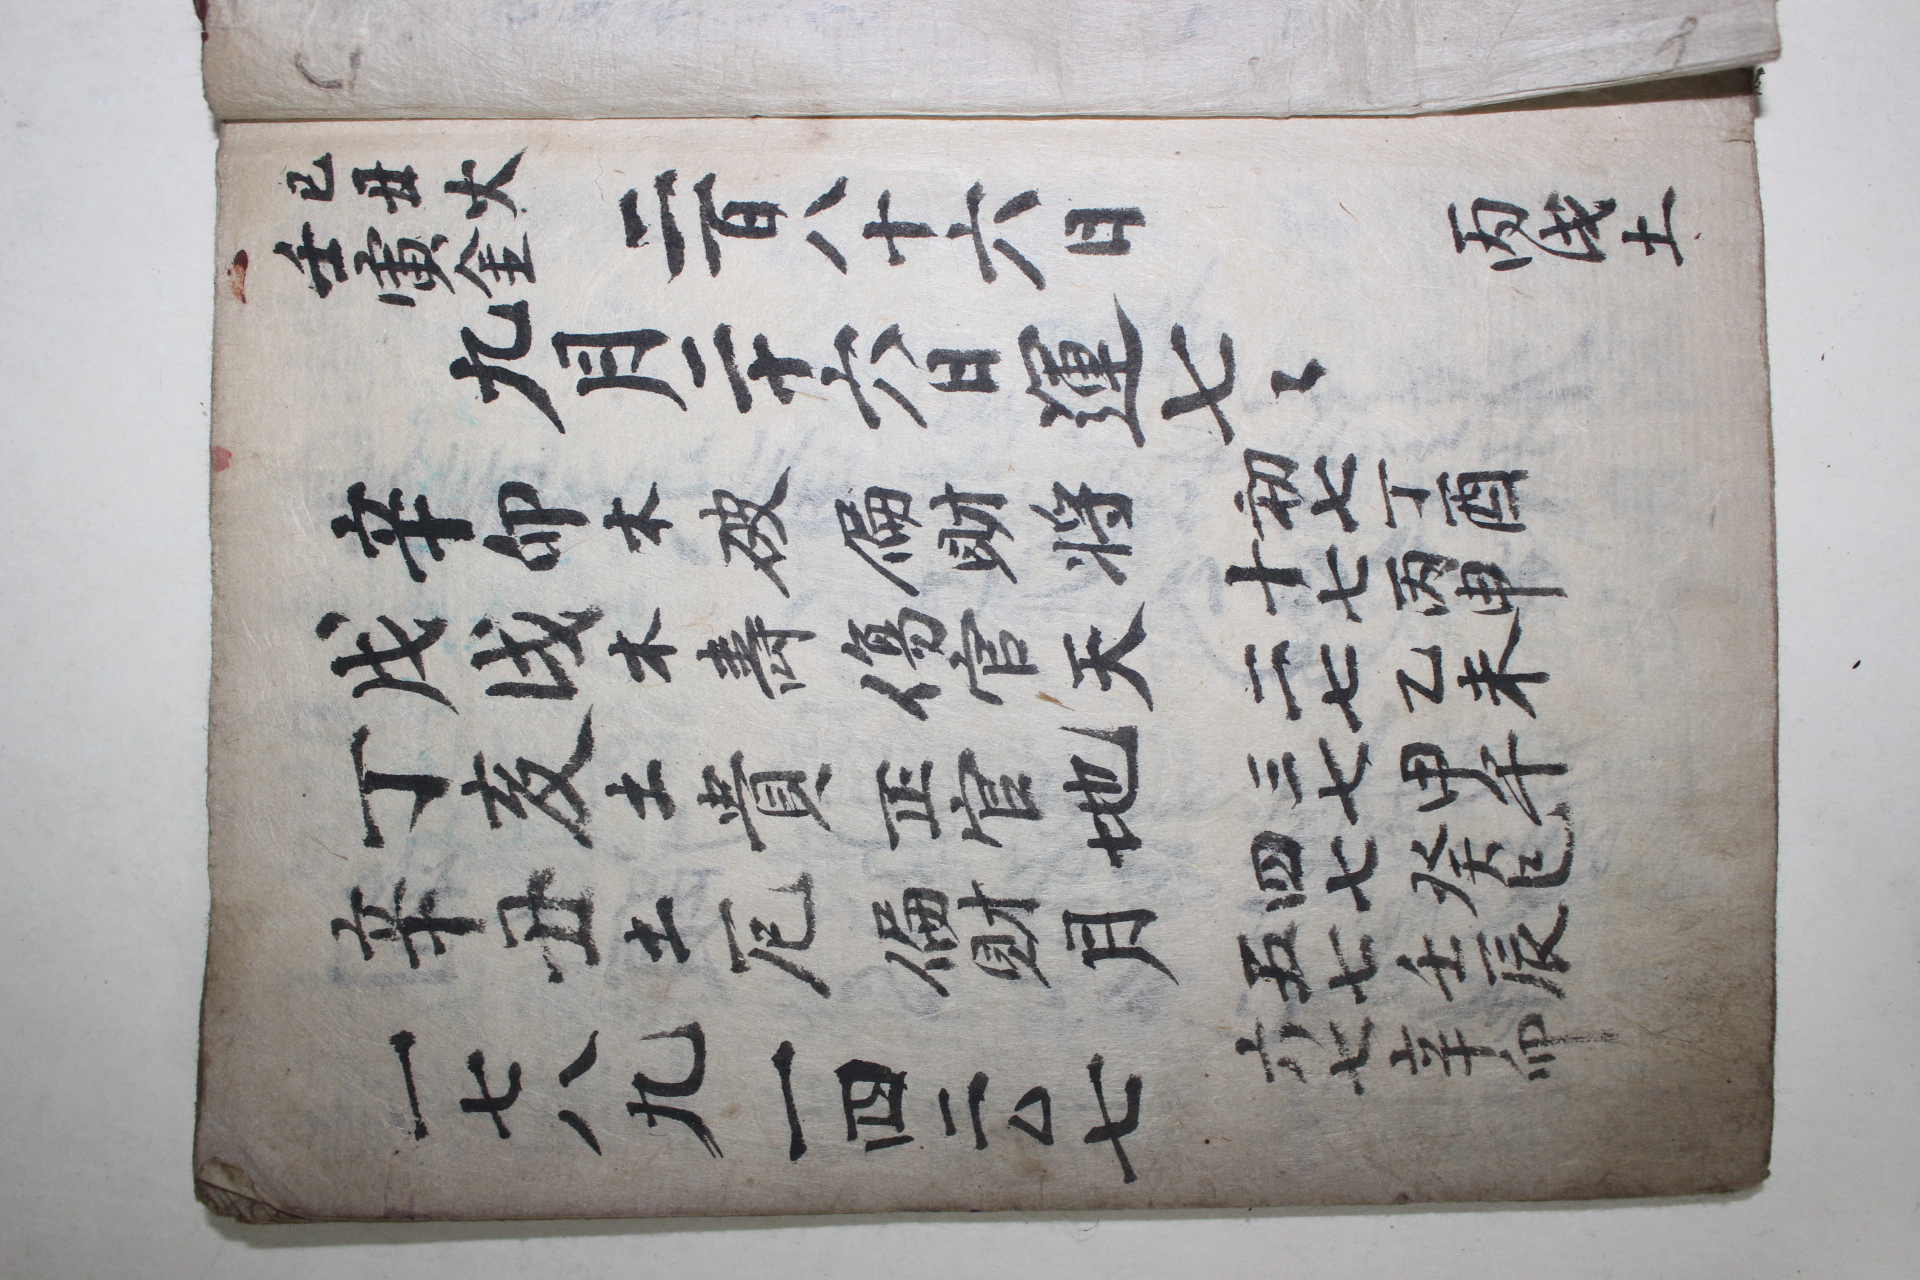 己丑火
壬寅金
二百八十六日
丙戌土
九月二十六日運七
辛卯木破偏財将
戊戌木壽傷官天
丁亥土貴正官地
辛丑土厄偏財月
初七丁酉
十七丙申
二七乙未
三七甲午
四七癸巳
五七壬辰
六七辛卯
一七八九一四二〇七